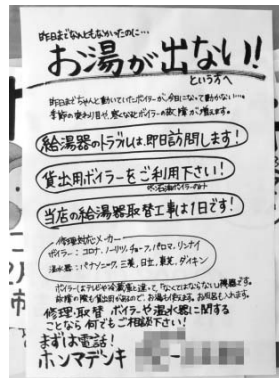 昨日までなんともなかったのに…
お湯が出ない!
という方へ
昨日までちゃんと動いていたボイラーが、今日になって動かない…。
季節の変わり目や、寒くなるとボイラーの故障が増えます。
給湯器のトラブルは、即日訪問します!
貸出用ボイラーをご利用下さい!
当店の給湯器取替工事は1日です!
修理対応メーカー
ボイラー:コロナ、ノーリツ、チョーフ、パロマ、リンナイ
温水器:パナソニック、三菱、日立、東芝、ダイキン
ボイラーはテレビや冷蔵庫と違って、"なくてはならない"機器です。
故障の際も貸出用があるので、お湯も使えます。お風呂も入れます。
修理・取替 ボイラーや温水器に関する
ことなら何でもご相談下さい!
まずは電話!
ホンマデンキ